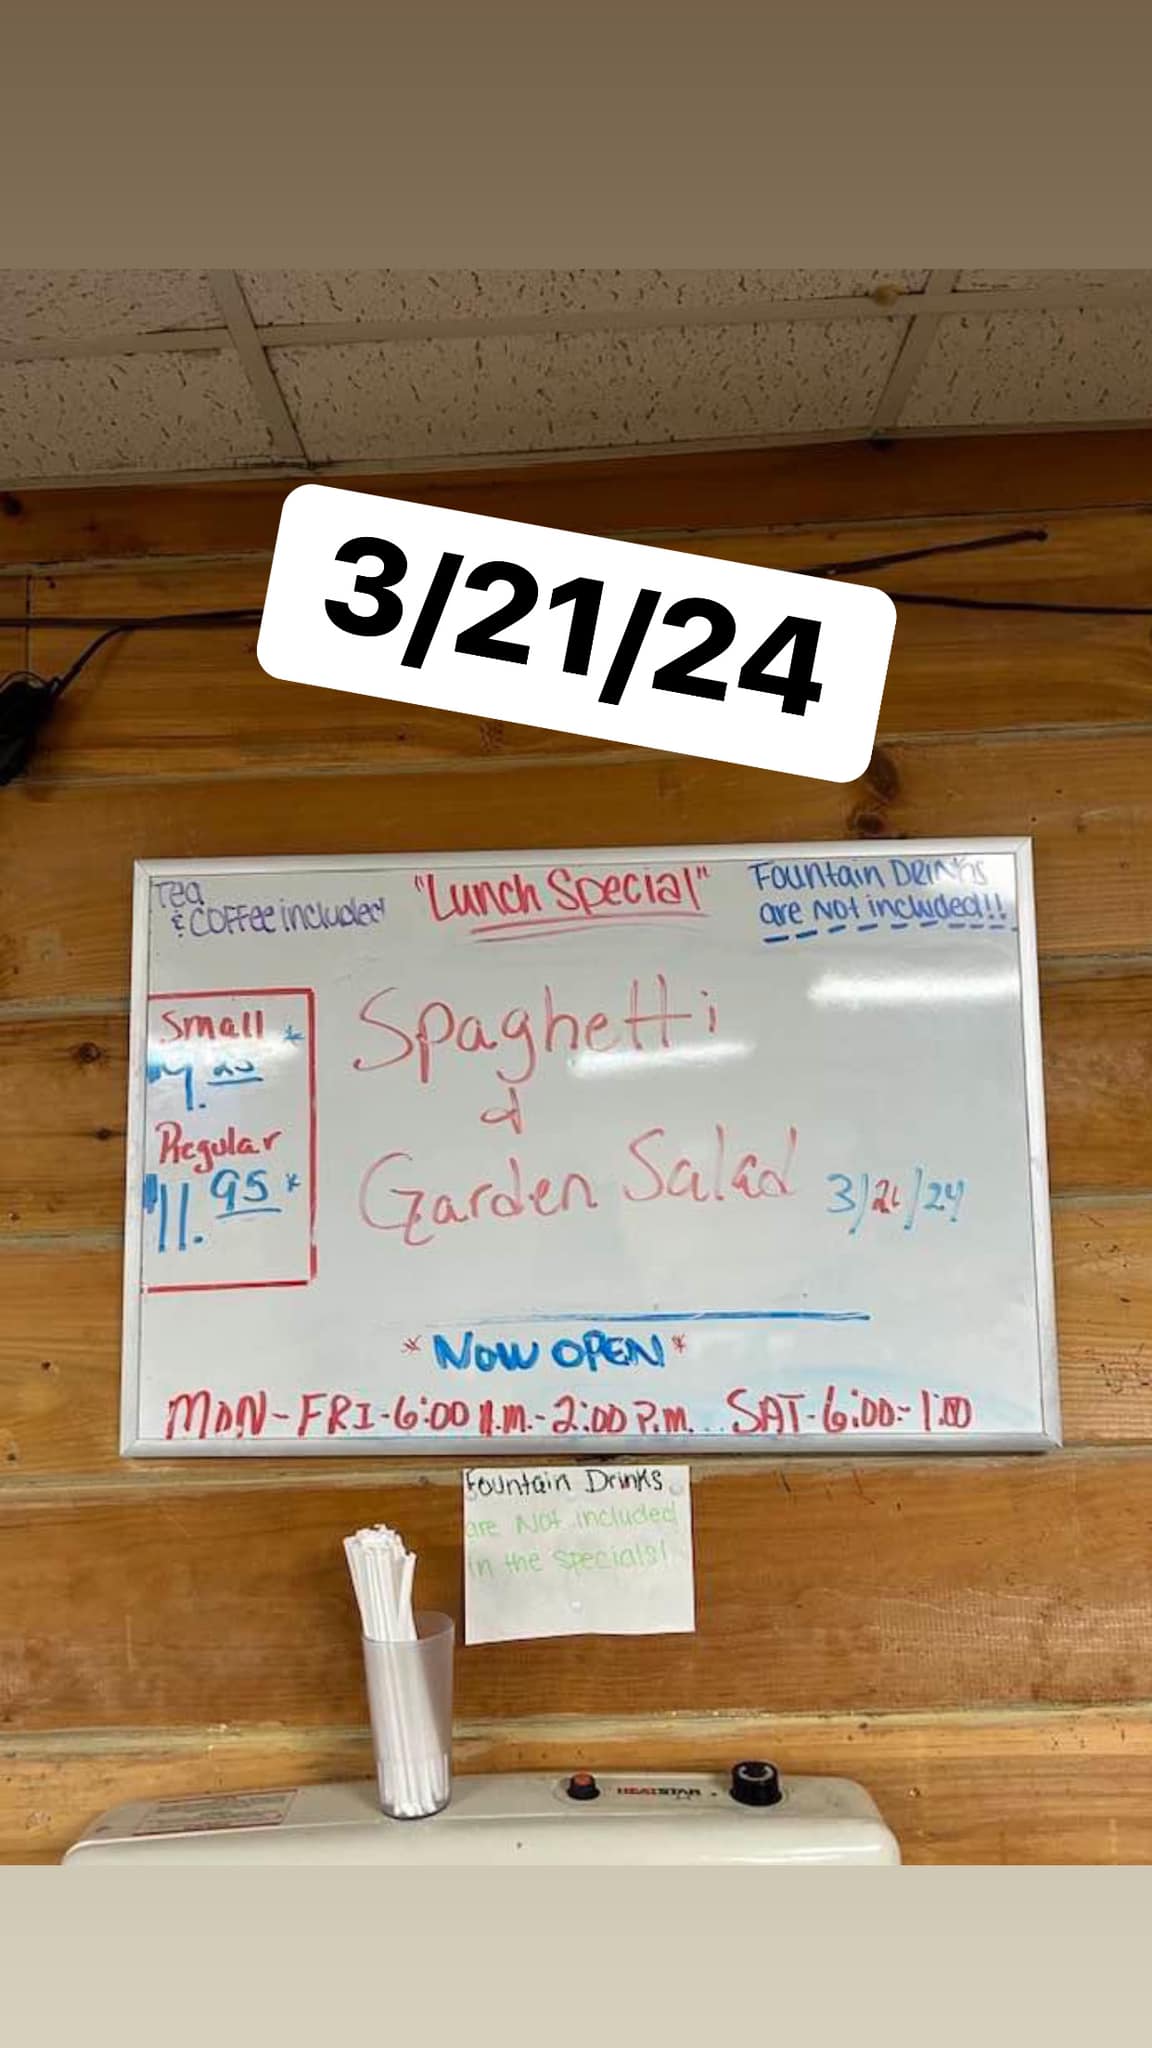 3/21/24
Tea
& COFFee included
"Lunch Special"
Fountain Drinks
are Not included!!
Small *
Regular
$11.95 *
Spaghetti
&
Garden Salad
3/21/24
*NOW OPEN*
MON-FRI-6:00 A.M.-2:00 P.M... SAT-6:00-1:00
Fountain Drinks
are Not included
in the specials!
HEATSTAR